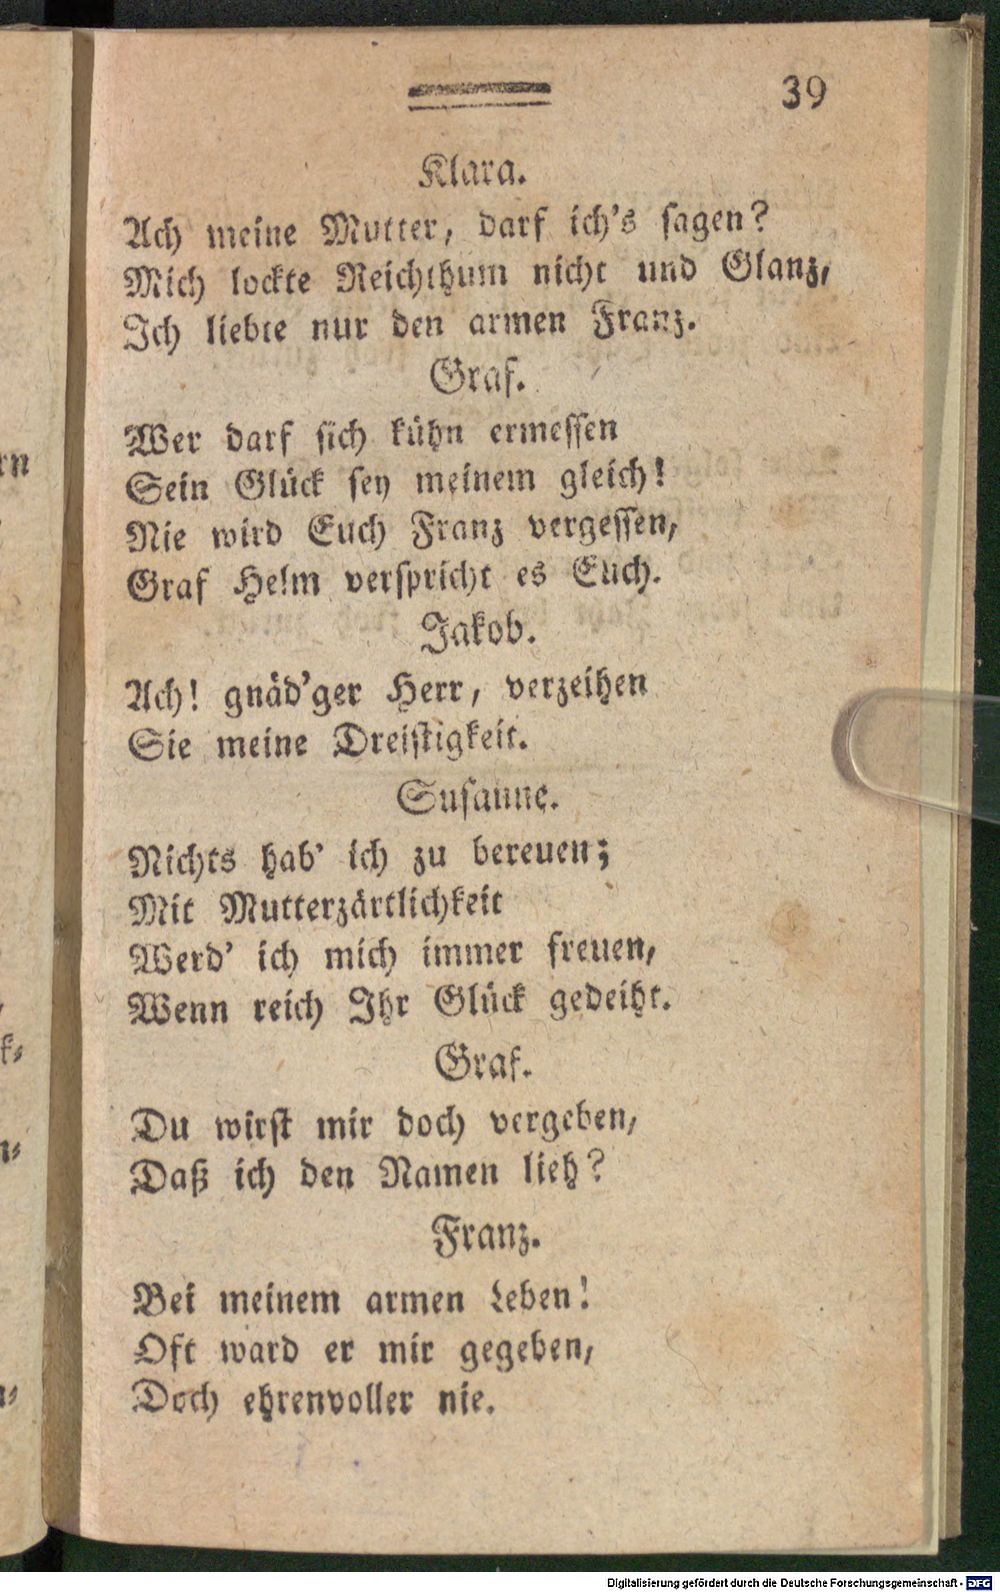 39
Klara.
Ach meine Mutter, darf ich's sagen?
Mich lockte Reichthum nicht und Glanz,
Ich liebte nur den armen Franz.
Graf.
Wer darf sich kühn ermessen
Sein Glück sey meinem gleich!
Nie wird Euch Franz vergessen,
Graf Helm verspricht es Euch.
Jakob.
Ach! gnäd'ger Herr, verzeihen
Sie meine Dreistigkeit.
Susanne.
Nichts hab' ich zu bereuen;
Mit Mutterzärtlichkeit
Werd' ich mich immer freuen,
Wenn reich Ihr Glück gedeiht.
Graf.
Du wirst mir doch vergeben,
Daß ich den Namen lieh?
Franz.
Bei meinem armen Leben!
Oft ward er mir gegeben,
Doch ehrenvoller nie.
Digitalisierung gefördert durch die Deutsche Forschungsgemeinschaft - DFG